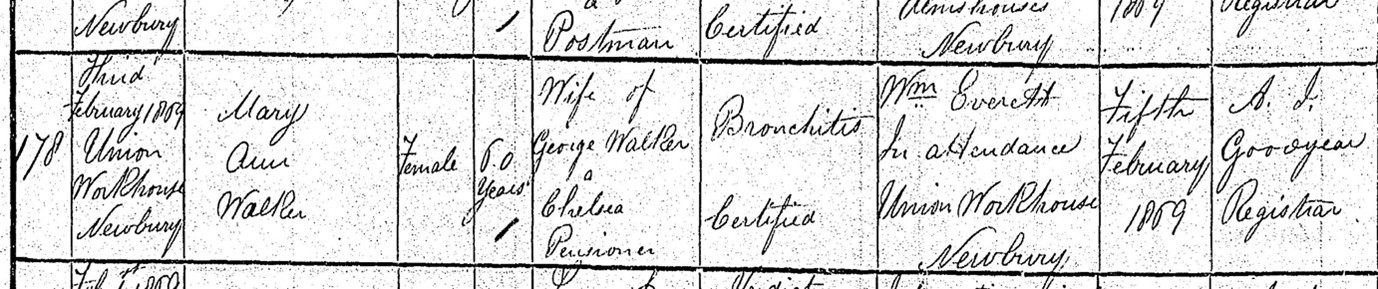 Newbury
Postman
Certified
Almshouses
Newbury
1869
Registrar
178
Third
February 1869
Union
Workhouse
Newbury
Mary
Ann
Walker
Female
60
Years
Wife of
George Walker
a
Chelsea
Pensioner
Bronchitis
Certified
Wm Everett
In attendance
Union Workhouse
Newbury
Fifth
February
1869
A. J.
Goodyear
Registrar
1869